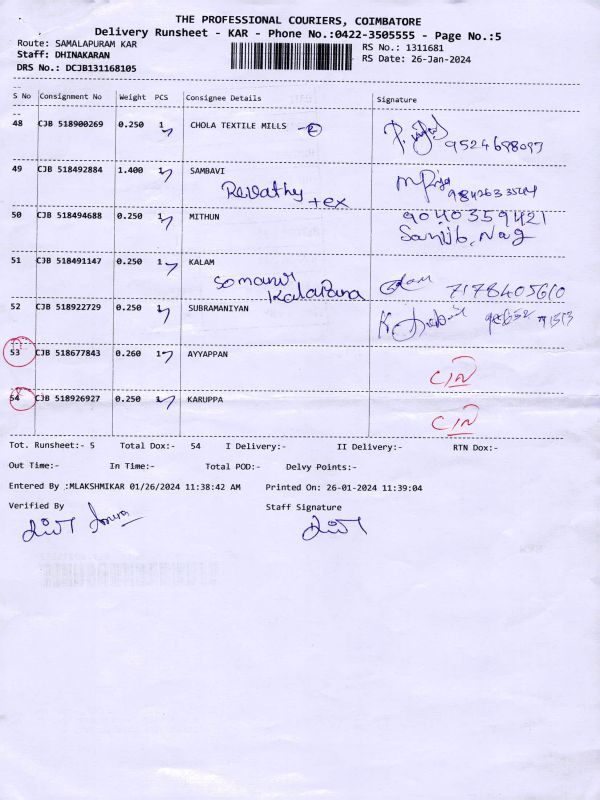 THE PROFESSIONAL COURIERS, COIMBATORE
Delivery Runsheet - KAR - Phone No.:0422-3505555 - Page No.:5
Route: SAMALAPURAM KAR
RS No.: 1311681
Staff: DHINAKARAN
RS Date: 26-Jan-2024
DRS No.: DCJB131168105
S No Consignment No Weight PCS Consignee Details Signature
48 CJB 518900269 0.250 1 CHOLA TEXTILE MILLS
49 CJB 518492884 1.400 1 SAMBAVI
Revathy tex
50 CJB 518494688 0.250 1 MITHUN 9040359421
Sanjib, Nag
51 CJB 518491147 0.250 1 KALAM
Somanur Kalapana 7178405610
52 CJB 518922729 0.250 1 SUBRAMANIYAN
53 CJB 518677843 0.260 1 AYYAPPAN
54 CJB 518926927 0.250 1 KARUPPA
Tot. Runsheet:- 5 Total Dox:- 54 I Delivery:- II Delivery:- RTN Dox:-
Out Time:- In Time:- Total POD:- Delvy Points:-
Entered By :MLAKSHMIKAR 01/26/2024 11:38:42 AM Printed On: 26-01-2024 11:39:04
Verified By Staff Signature